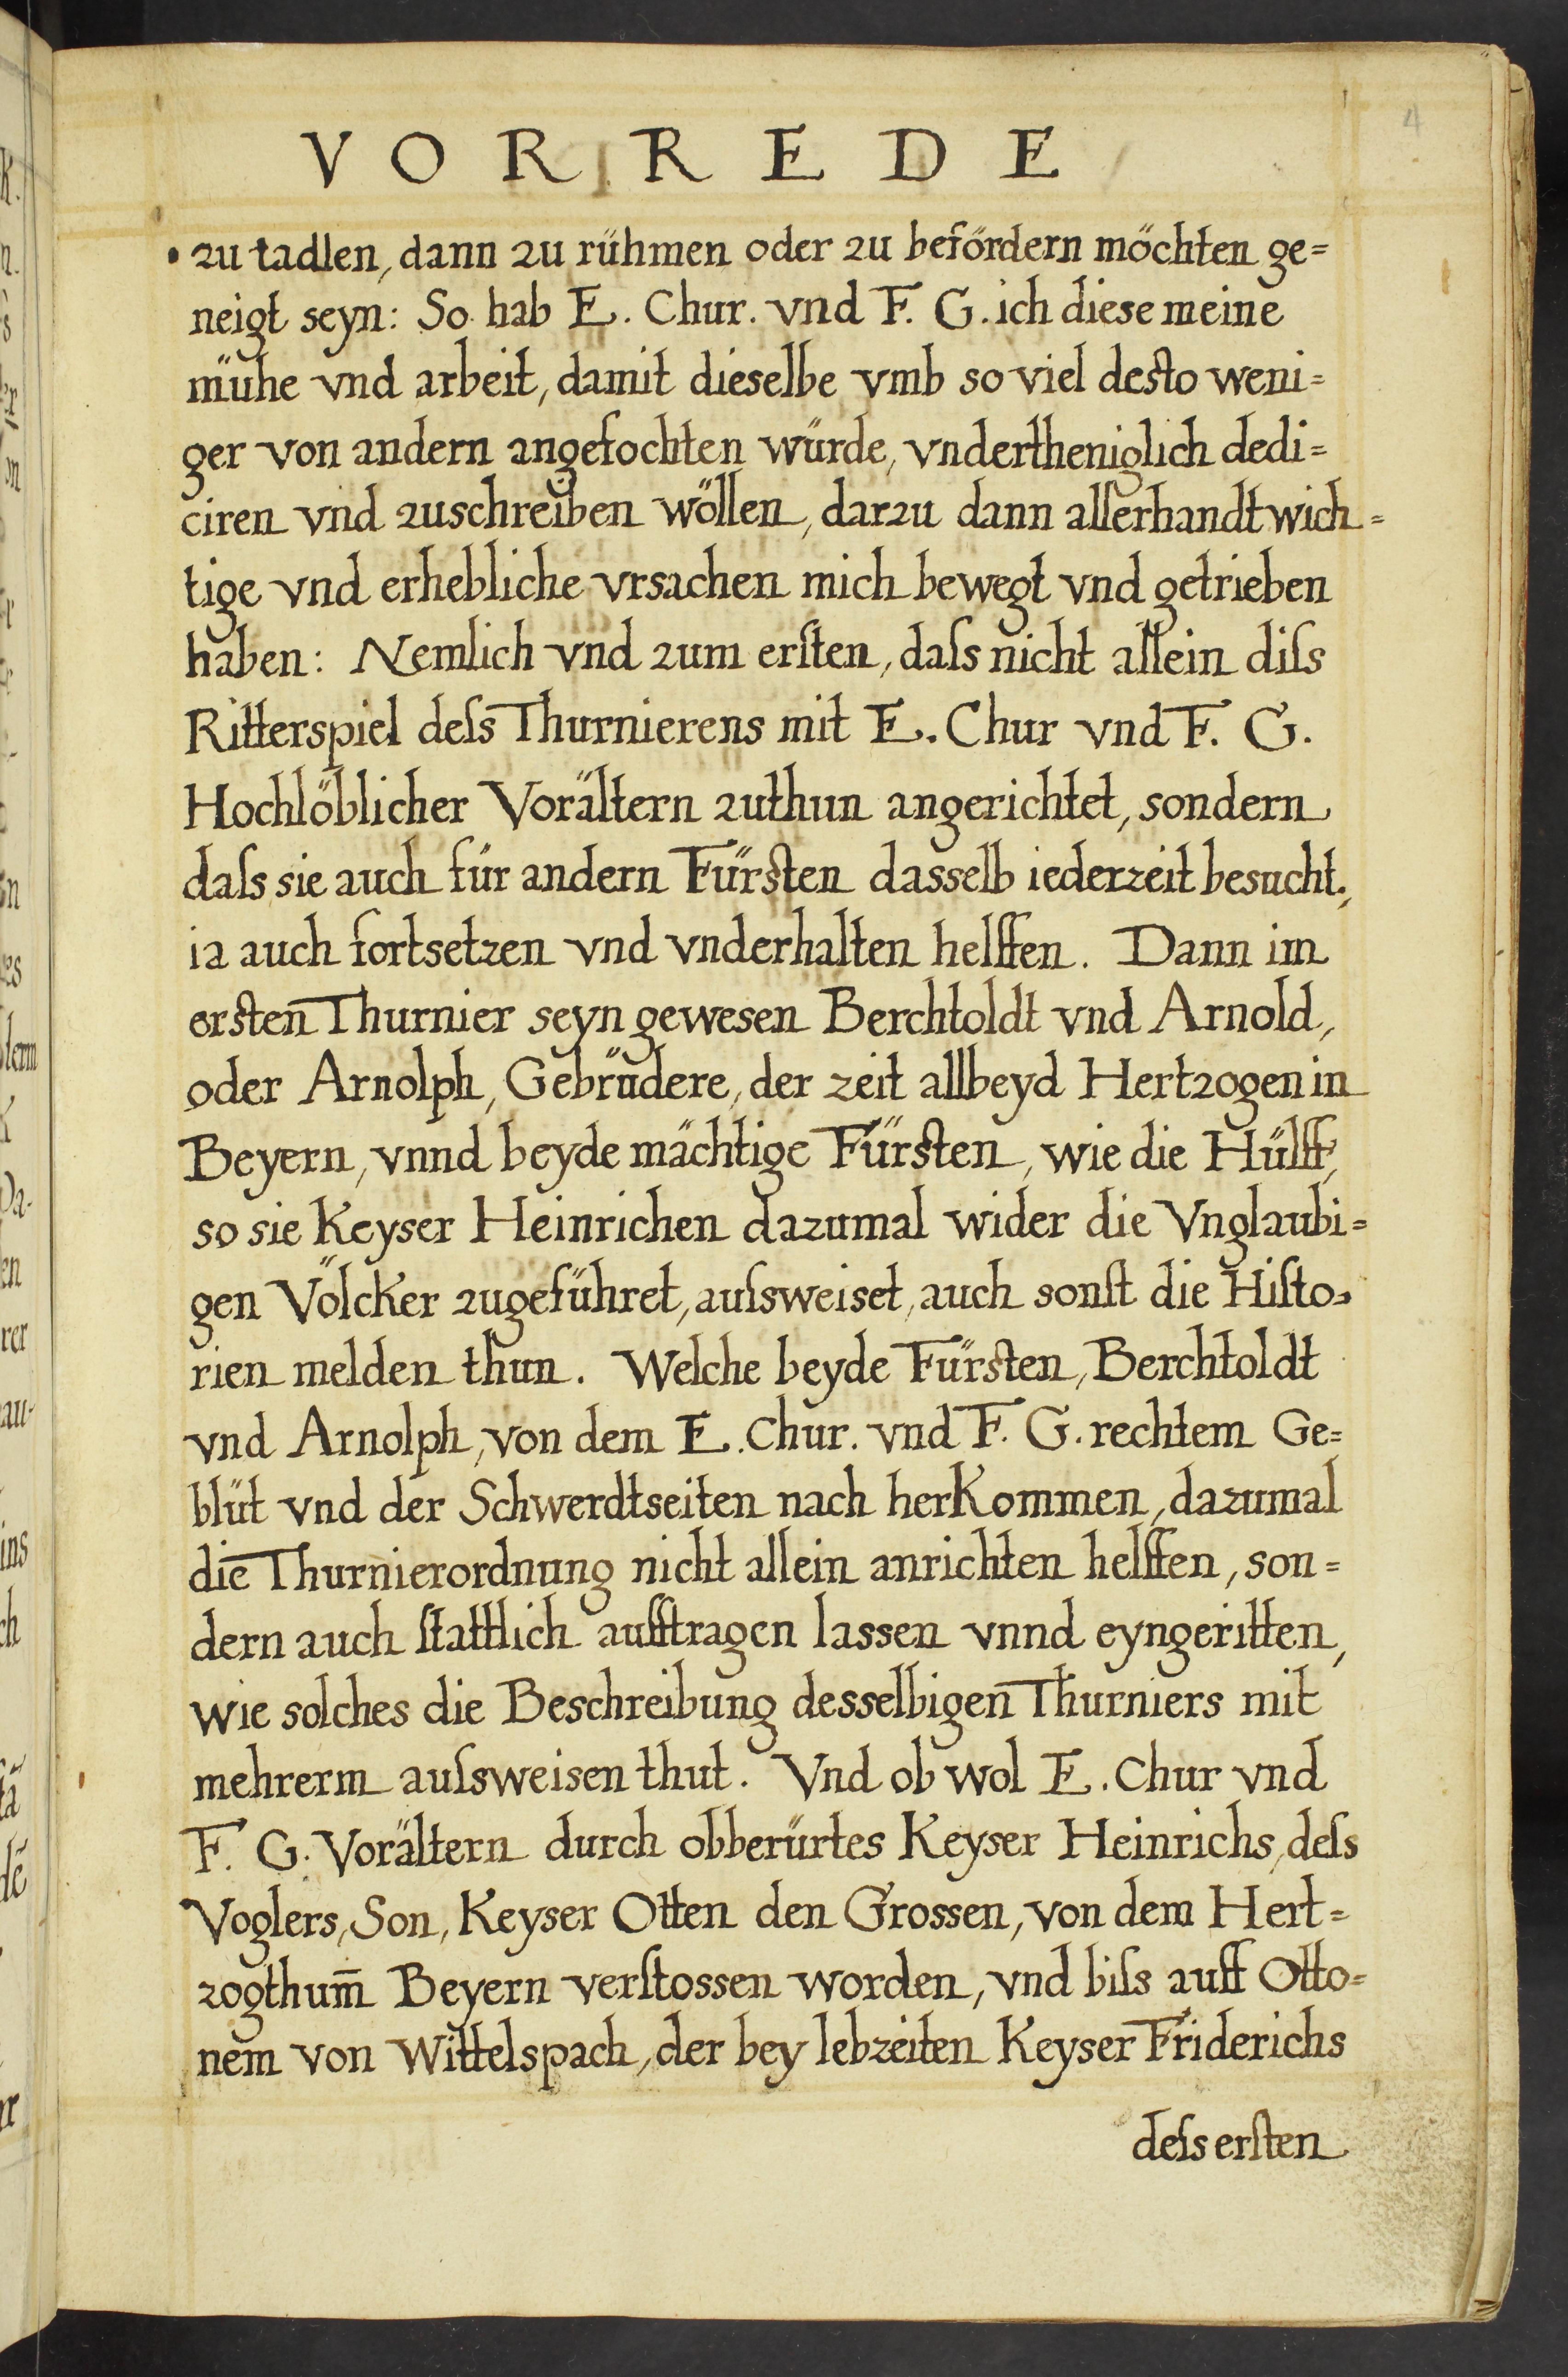 4
VORREDE
zu tadlen, dann zu rühmen oder zu befördern möchten ge=
neigt seyn: So hab E. Chur. vnd F. G. ich diese meine
mühe vnd arbeit, damit dieselbe vmb so viel desto weni=
ger von andern angefochten würde, vndertheniglich dedi=
ciren vnd zuschreiben wöllen, darzu dann allerhandt wich=
tige vnd erhebliche vrsachen mich bewegt vnd getrieben
haben: Nemlich vnd zum erſten, daſs nicht allein diſs
Ritterspiel deſs Thurnierens mit E. Chur vnd F. G.
Hochlöblicher Vorältern zuthun angerichtet, sondern
daſs sie auch für andern Fürsten dasselb iederzeit besucht,
ia auch fortsetzen vnd vnderhalten helffen. Dann im
ersten Thurnier seyn gewesen Berchtoldt vnd Arnold,
oder Arnolph, Gebrüdere, der zeit allbeyd Hertzogen in
Beyern, vnnd beyde mächtige Fürsten, wie die Hülff,
so sie Keyser Heinrichen dazumal wider die Vnglaubi=
gen Völcker zugeführet, auſsweiset, auch sonſt die Hiſto=
rien melden thun. Welche beyde Fürsten, Berchtoldt
vnd Arnolph, von dem E. Chur. vnd F. G. rechtem Ge=
blüt vnd der Schwerdtseiten nach herKommen, dazumal
die Thurnierordnung nicht allein anrichten helffen, son=
dern auch ſtattlich aufftragen lassen vnnd eyngeritten,
wie solches die Beschreibung desselbigen Thurniers mit
mehrerm auſsweisen thut. Vnd ob wol E. Chur vnd
F. G. Vorältern durch obberürtes Keyser Heinrichs, deſs
Voglers, Son, Keyser Otten den Grossen, von dem Hert=
zogthum̄ Beyern verſtossen worden, vnd biſs auff Otto=
nem von Wittelspach, der bey lebzeiten Keyser Friderichs
deſs erſten